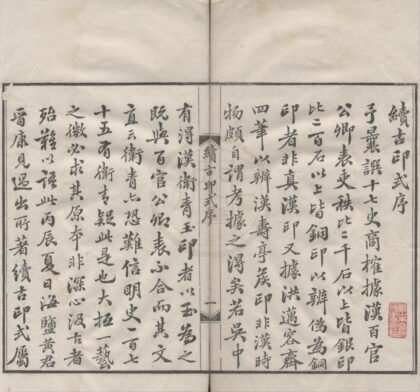 續古印式序
予曩譔十七史商榷據漢百官
公卿表吏秩比二千石以上皆銀印
比二百石以上皆銅印以辨僞爲銅
印者非真漢印又據洪邁容齋
四筆以辨漢壽亭矦印非漢時
物頗自謂考據之淂矣若吳中
續古印式序
一
有淂漢衛青玉印者以玉爲之
既與百官公卿表不合而其文
直云衛青亦恐難信明史一百七
十五有衛青疑此是也大抵一藝
之微必求其原本非深心汲古者
殆難以語此丙辰夏日海鹽黃君
晉康見過出所著續古印式屬